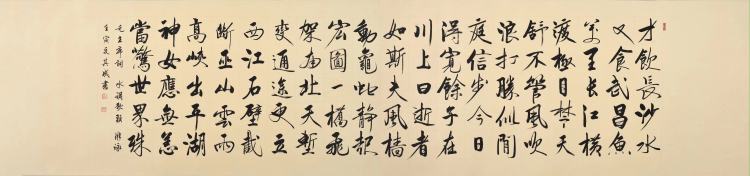 才飲長沙水
又食武昌魚
萬里長江橫
渡極目楚天
舒不管風吹
浪打勝似閒
庭信步今日
得寬餘子在
川上曰逝者
如斯夫風檣
動龜蛇靜起
宏圖一橋飛
架南北天塹
變通途更立
西江石壁截
斷巫山雲雨
高峽出平湖
神女應無恙
當驚世界殊
毛主席詞 水調歌頭 游泳
壬寅夏其成書